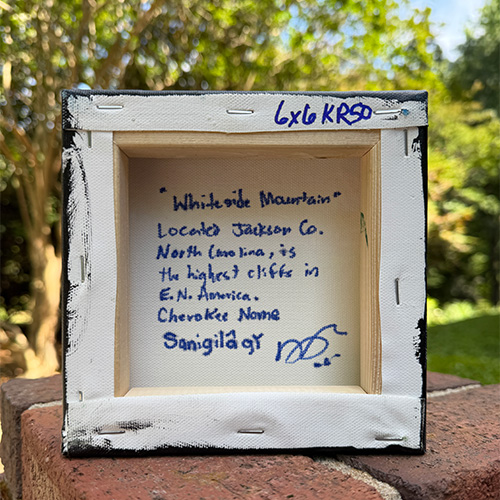 6x6 KR50
"Whiteside Mountain"
Located Jackson Co.
North Carolina, is
the highest cliffs in
E.N. America.
Cherokee Name
Sanigilâgy